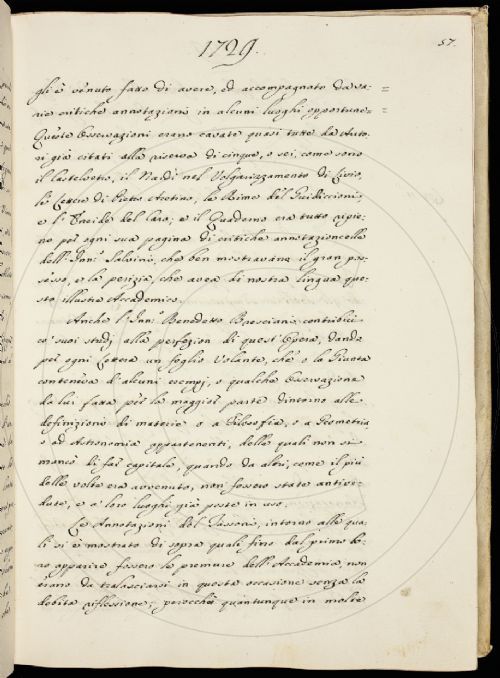 1729.
57.
gli è venuto fatto di avere, ed accompagnato da va=
rie critiche annotazioni in alcuni luoghi opportune=
Queste Osservazioni erano cavate quasi tutte da Auto
ri già citati alla riserva di cinque, o sei, come sono
il Castelvetro, il Nardi nel Volgarizzamento di Livio,
le Lettere di Pietro Aretino, le Rime del Guidiccioni,
e l'Eneide del Caro; e il Quaderno era tutto ripie:
no per ogni sua pagina di critiche annotazioncelle
dell'Inn.º Salvini, che ben mostravano il gran pos
sesso, e la perizia, che avea di nostra lingua que=
sto illustre Accademico.
Anche l'Inn.º Benedetto Bresciani contribuì
co' suoi studj alla perfezion di quest'Opera, dando
per ogni Lettera un foglio Volante, che o la Giunta
conteneva d'alcuni esempj, o qualche Osservazione
da lui fatta per la maggior parte dintorno alle
definizioni di materie o a Filosofia, o a Geometria
o ad Astronomia appartenenti, delle quali non si
mancò di far capitale, quando da altri, come il più
delle volte era avvenuto, non fossero state antive=
dute, e a' loro luoghi già poste in uso.
Le Annotazioni del Tassoni, intorno alle qua=
li si è mostrato di sopra quali fino dal primo lo:
ro apparire fossero le premure dell'Accademia, non
erano da tralasciarsi in questa occasione senza la
debita riflessione; perocchè quantunque in molte